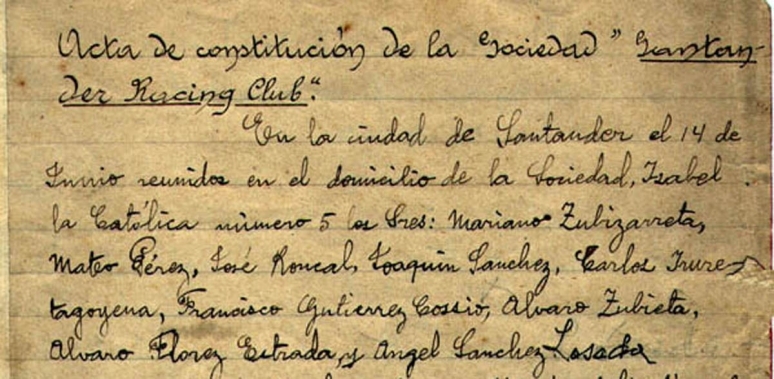 Acta de constitución de la Sociedad "Santan-
der Racing Club".
En la ciudad de Santander el 14 de
Junio reunidos en el domicilio de la Sociedad, Isabel
la Católica número 5 los Sres: Mariano Zubizarreta,
Mateo Pérez, José Roncal, Joaquin Sanchez, Carlos Irure-
tagoyena, Francisco Gutierrez Cossio, Alvaro Zubieta,
Alvaro Florez Estrada, y Angel Sanchez Losada